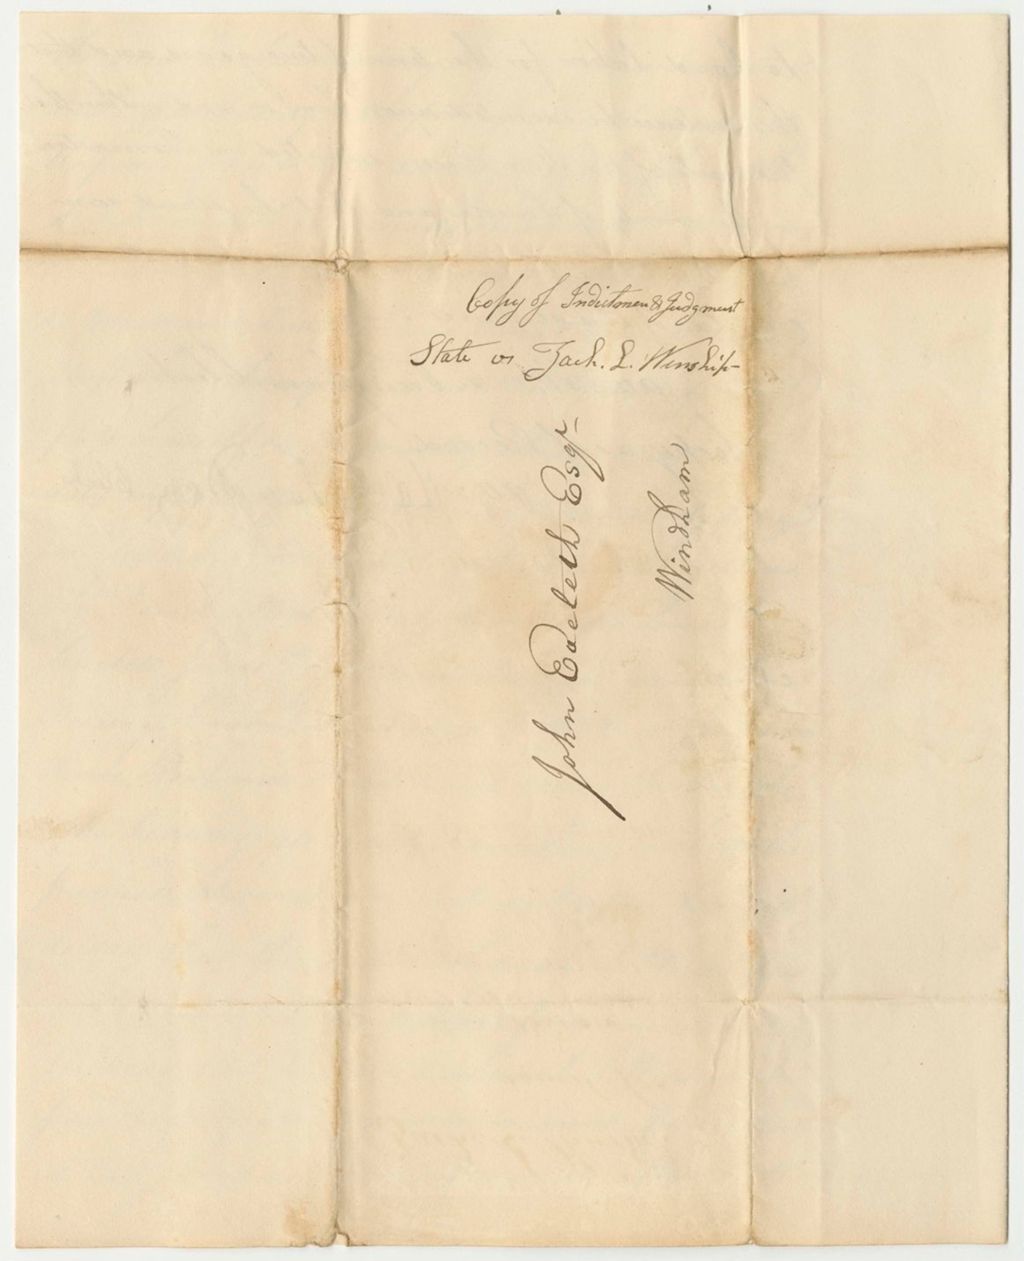 Copy of Indictmen & Judgment
State vs Zach. L. Winship
John Eveleth Esqr
Windham